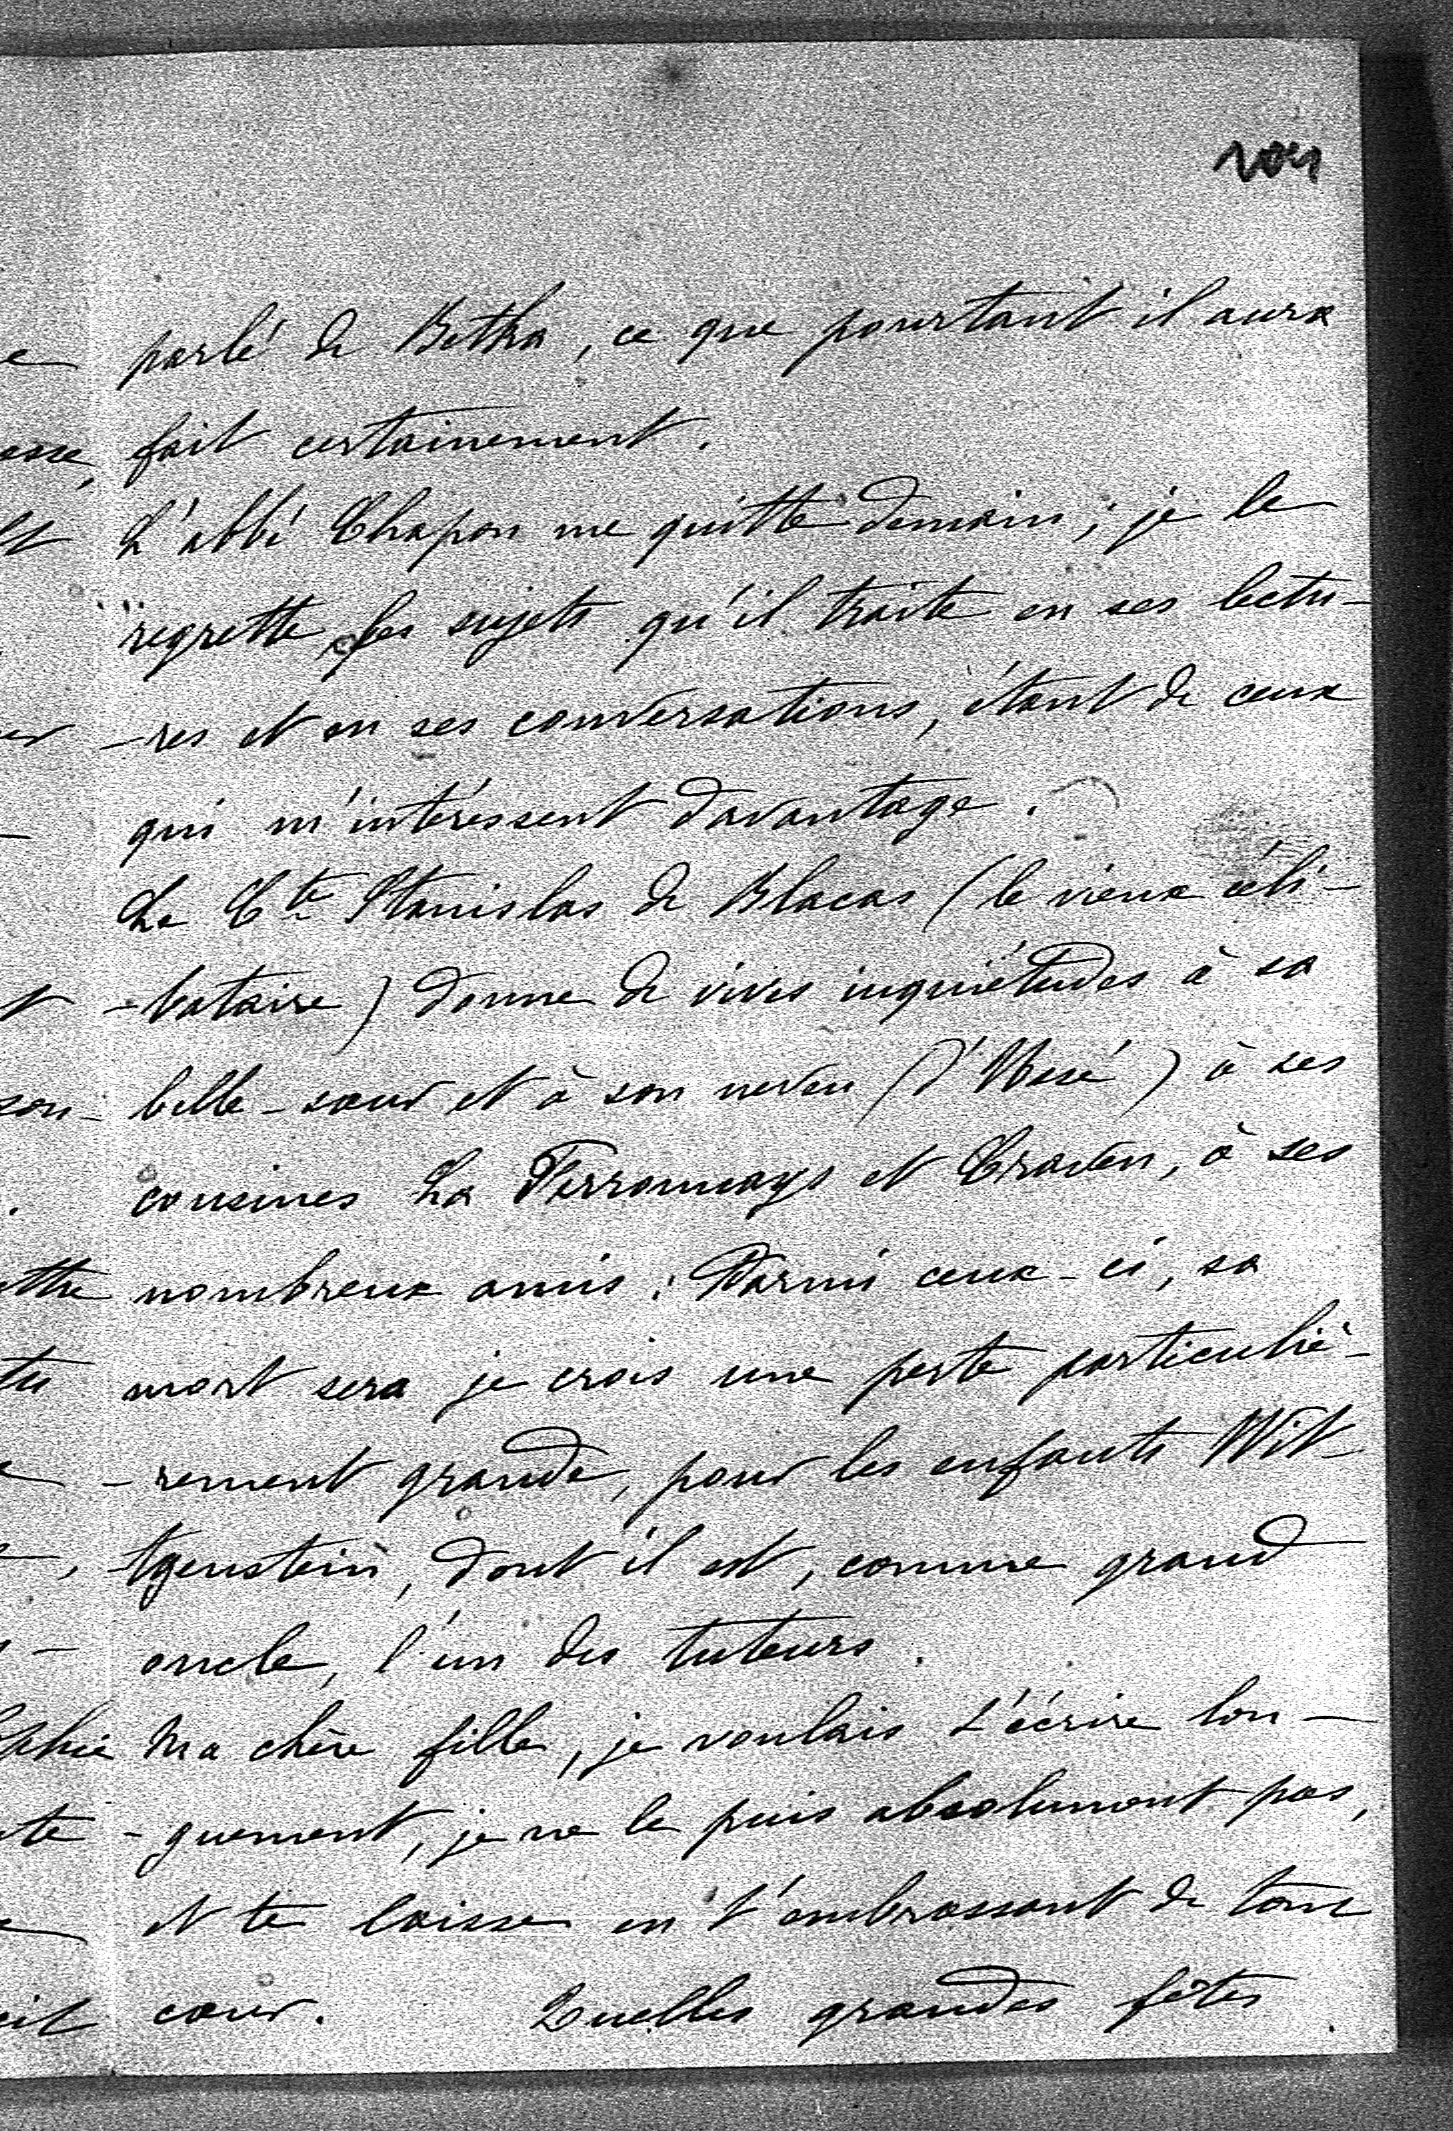 parlé de Betha, ce que pourtant il aura
fait certainement.
L'abbé Chapon me quitte demain; je le
regrette, les sujets qu'il traite en ses lectu-
-res et en ses conversations, étant de ceux
qui m'intéressent davantage.
Le Cte Stanislas de Blacas (le vieux céli-
-bataire) donne de vives inquiétudes à sa
belle-sœur et à son neveu (d'Ussé) à ses
cousines La Ferronnays et Craven, à ses
nombreux amis. Parmi ceux-ci, sa
mort sera je crois une perte particuliè-
-rement grande, pour les enfants Wit-
-tgenstein, dont il est, comme grand
oncle, l'un des tuteurs.
Ma chère fille, je voulais t'écrire lon-
-guement, je ne le puis absolument pas,
et te laisse en t'embrassant de tout
cœur. Quelles grandes fêtes